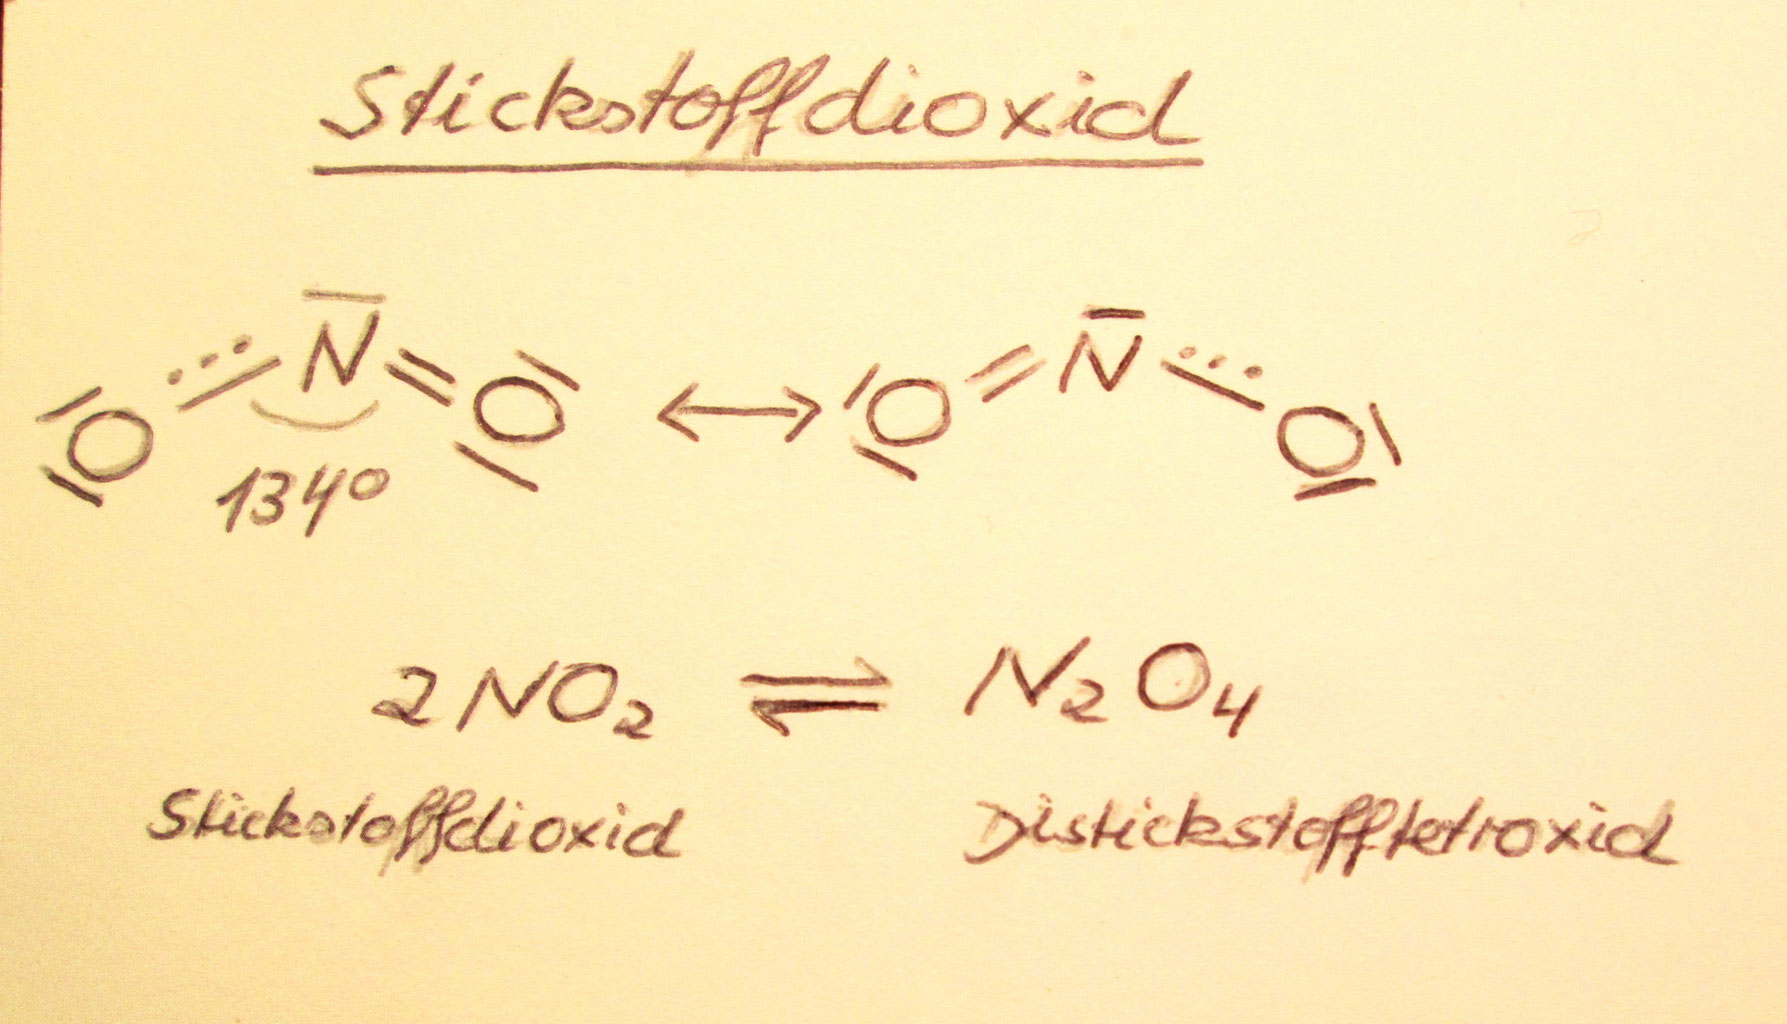 Stickstoffdioxid
O N O ↔ O N O
134°
2 NO₂ ⇌ N₂O₄
Stickstoffdioxid Distickstofftetroxid